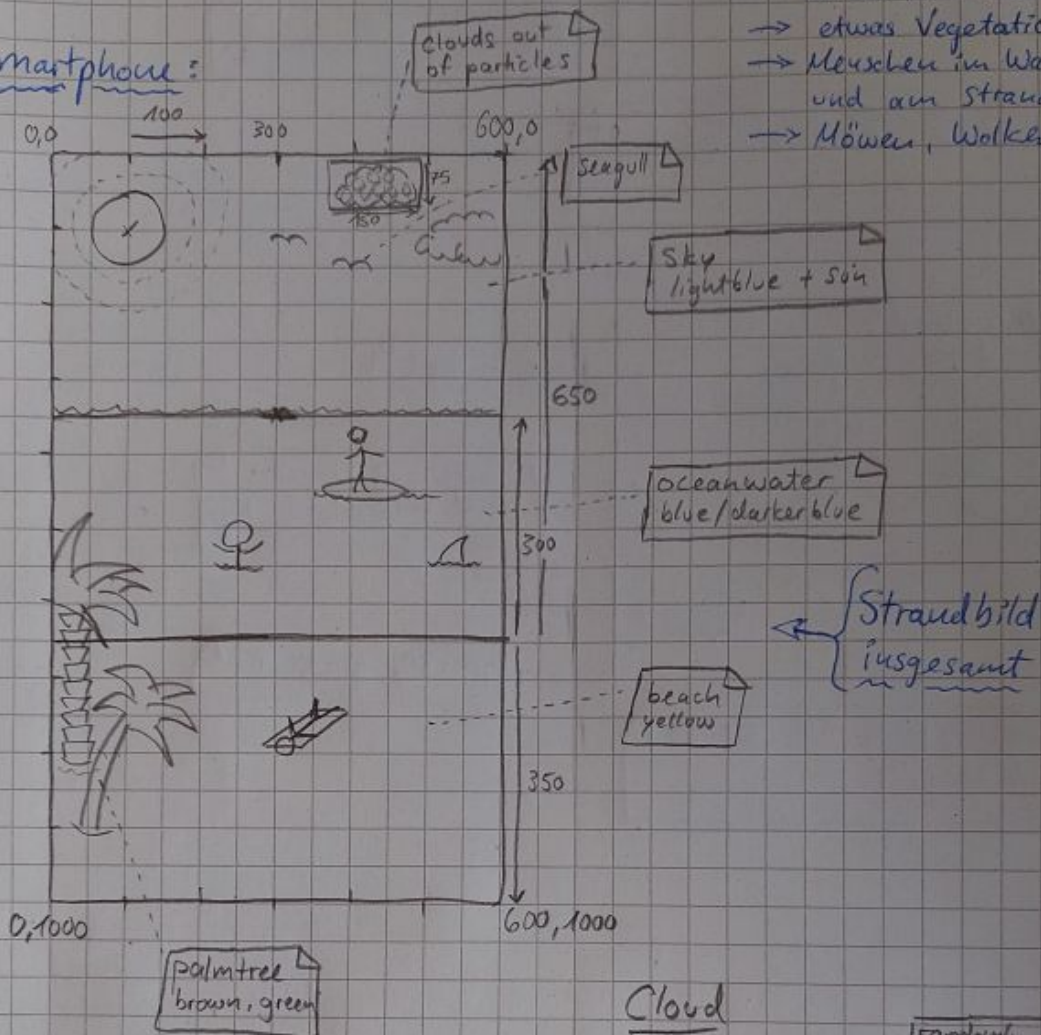 clouds out
of particles
→ etwas
→ Menschen im
und am
→ Möwen,
0,0
100
300
600,0
seagull
75
150
sky
lightblue + sun
650
oceanwater
blue/darkerblue
300
Strandbild
insgesamt
beach
yellow
350
0,1000
600,1000
palmtree
brown, green
Cloud